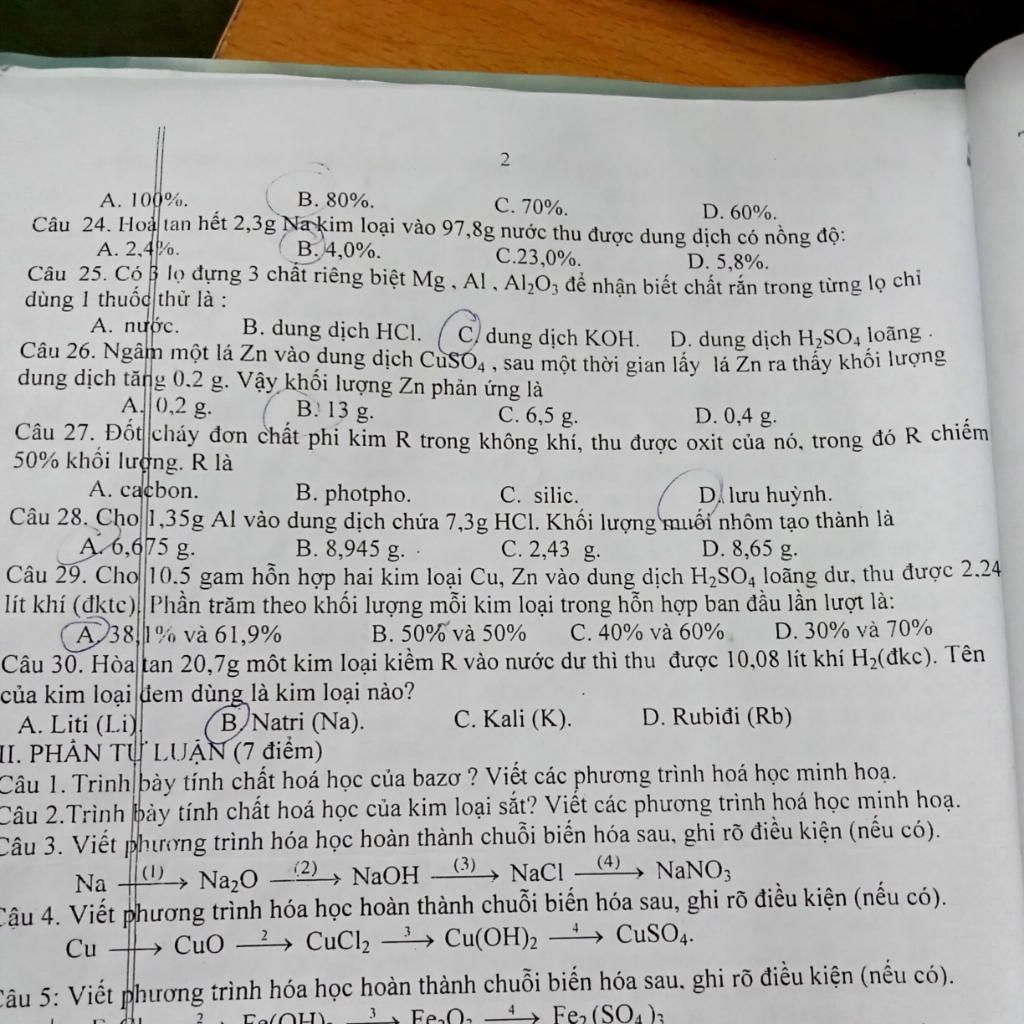 2
A. 100%. B. 80%. C. 70%. D. 60%.
Câu 24. Hoà tan hết 2,3g Na kim loại vào 97,8g nước thu được dung dịch có nồng độ:
A. 2,4%. B. 4,0%. C.23,0%. D. 5,8%.
Câu 25. Có 3 lọ đựng 3 chất riêng biệt Mg , Al , Al₂O₃ để nhận biết chất rắn trong từng lọ chỉ
dùng 1 thuốc thử là :
A. nước. B. dung dịch HCl. C. dung dịch KOH. D. dung dịch H₂SO₄ loãng .
Câu 26. Ngâm một lá Zn vào dung dịch CuSO₄ , sau một thời gian lấy lá Zn ra thấy khối lượng
dung dịch tăng 0.2 g. Vậy khối lượng Zn phản ứng là
A. 0,2 g. B. 13 g. C. 6,5 g. D. 0,4 g.
Câu 27. Đốt cháy đơn chất phi kim R trong không khí, thu được oxit của nó, trong đó R chiếm
50% khối lượng. R là
A. cacbon. B. photpho. C. silic. D. lưu huỳnh.
Câu 28. Cho 1,35g Al vào dung dịch chứa 7,3g HCl. Khối lượng muối nhôm tạo thành là
A. 6,675 g. B. 8,945 g. C. 2,43 g. D. 8,65 g.
Câu 29. Cho 10.5 gam hỗn hợp hai kim loại Cu, Zn vào dung dịch H₂SO₄ loãng dư, thu được 2,24
lít khí (đktc). Phần trăm theo khối lượng mỗi kim loại trong hỗn hợp ban đầu lần lượt là:
A. 38,1% và 61,9% B. 50% và 50% C. 40% và 60% D. 30% và 70%
Câu 30. Hòa tan 20,7g một kim loại kiềm R vào nước dư thì thu được 10,08 lít khí H₂(đkc). Tên
của kim loại đem dùng là kim loại nào?
A. Liti (Li). B. Natri (Na). C. Kali (K). D. Rubiđi (Rb)
II. PHẦN TỰ LUẬN (7 điểm)
Câu 1. Trình bày tính chất hoá học của bazơ ? Viết các phương trình hoá học minh hoạ.
Câu 2.Trình bày tính chất hoá học của kim loại sắt? Viết các phương trình hoá học minh hoạ.
Câu 3. Viết phương trình hóa học hoàn thành chuỗi biến hóa sau, ghi rõ điều kiện (nếu có).
Na (1)→ Na₂O (2)→ NaOH (3)→ NaCl (4)→ NaNO₃
Câu 4. Viết phương trình hóa học hoàn thành chuỗi biến hóa sau, ghi rõ điều kiện (nếu có).
Cu → CuO 2→ CuCl₂ 3→ Cu(OH)₂ 4→ CuSO₄.
Câu 5: Viết phương trình hóa học hoàn thành chuỗi biến hóa sau, ghi rõ điều kiện (nếu có).
2→ Fe(OH)₃ 3→ Fe₂O₃ 4→ Fe₂(SO₄)₃